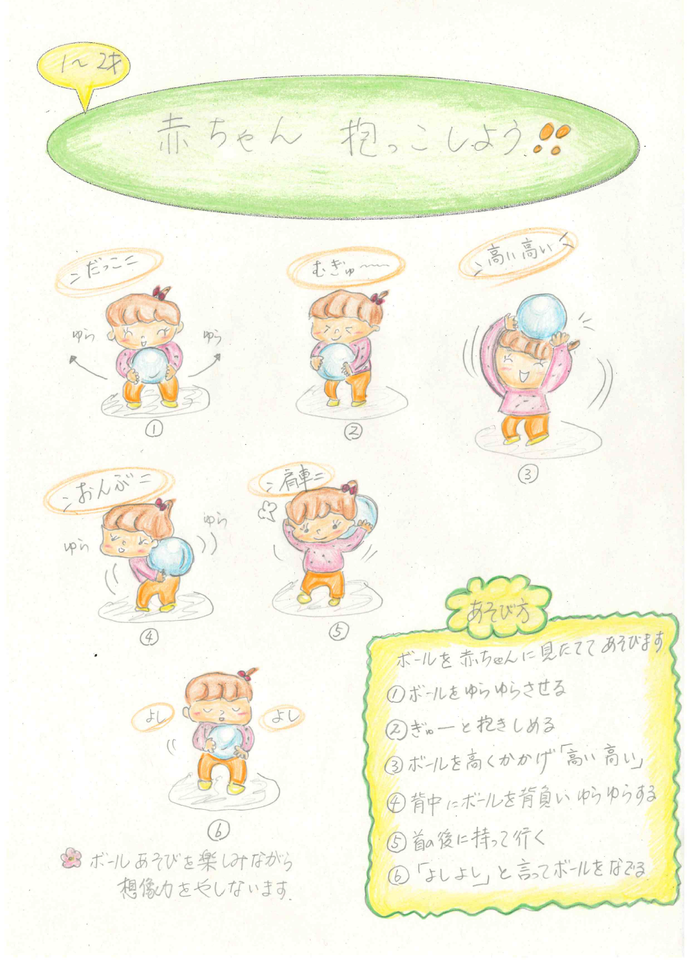 1〜2才
赤ちゃん 抱っこしよう!!
だっこ
ゆら ゆら
①
むぎゅ〜〜
②
高い高い
③
おんぶ
ゆら ゆら
④
肩車
⑤
よし よし
⑥
ボールあそびを楽しみながら
想像力をやしないます.
あそび方
ボールを赤ちゃんに見たててあそびます
①ボールをゆらゆらさせる
②ぎゅーと抱きしめる
③ボールを高くかかげ「高い高い」
④背中にボールを背負いゆらゆらする
⑤首の後に持って行く
⑥「よしよし」と言ってボールをなでる